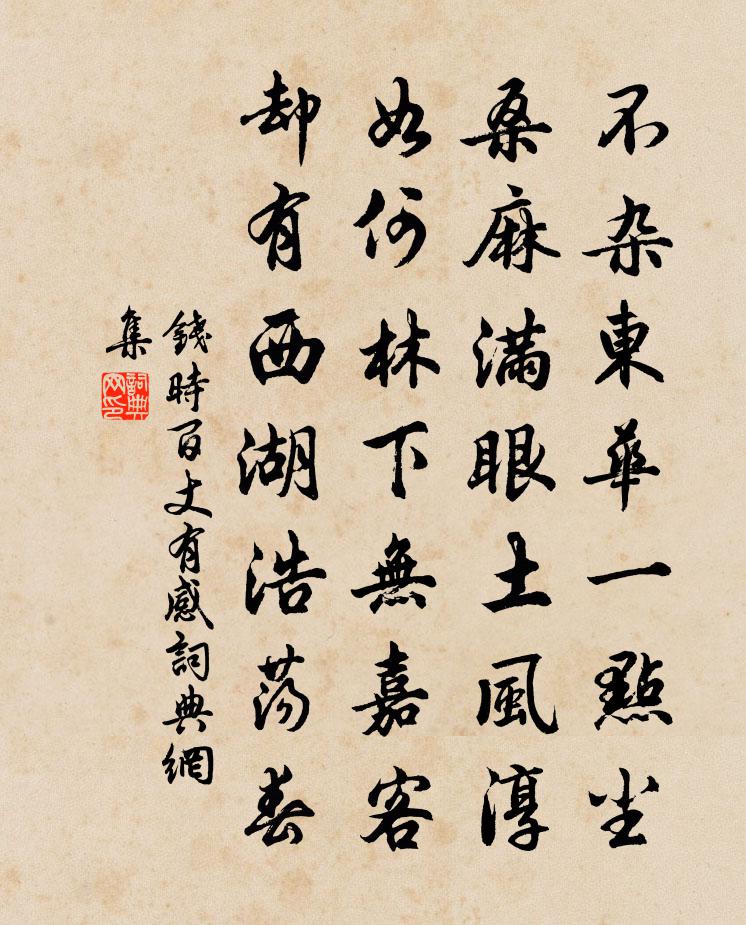 不杂東華一點尘
桑麻滿眼土風淳
如何林下無嘉客
却有西湖浩荡春
錢時百丈有感詞典網
集
詞典
网印